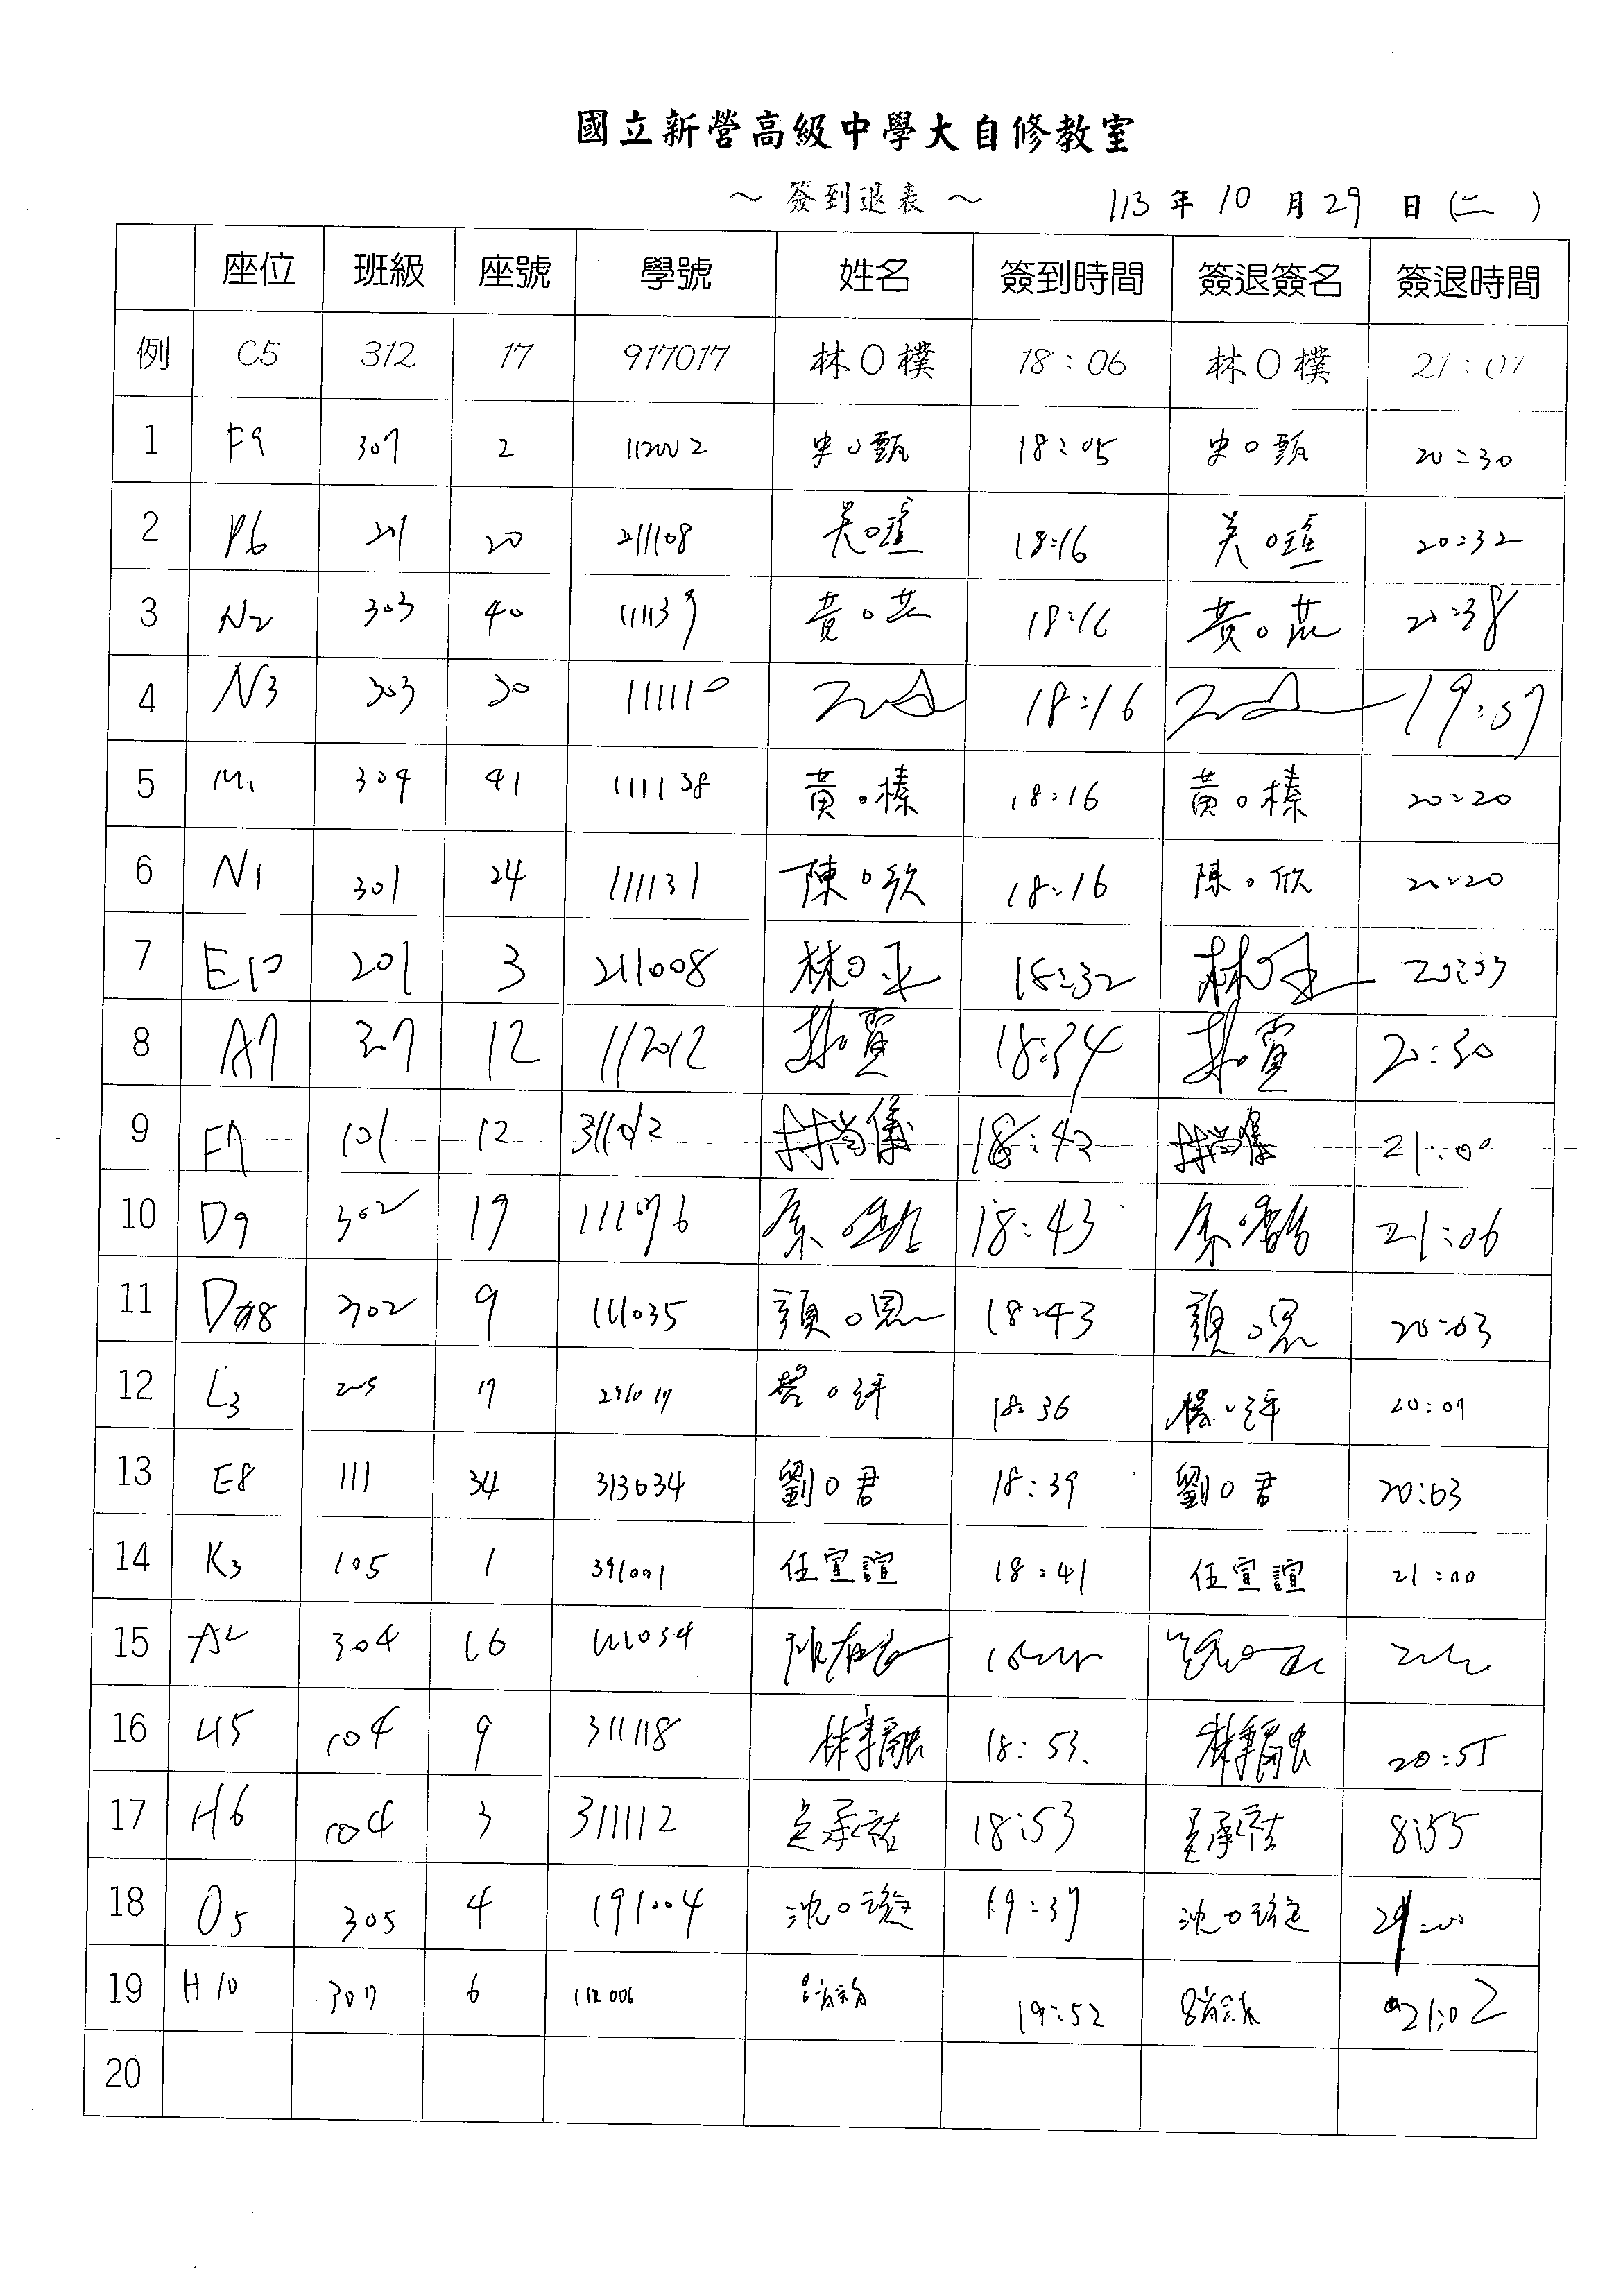 國立新營高級中學大自修教室
~ 簽到退表 ~ 113 年 10 月 29 日 (二)
座位 班級 座號 學號 姓名 簽到時間 簽退簽名 簽退時間
例 C5 312 17 917017 林〇樸 18:06 林〇樸 21:07
1 F9 307 2 112002 史〇甄 18:05 史〇甄 20:30
2 P6 201 20 211108 吳〇瑄 18:16 吳〇瑄 20:32
3 N2 303 40 111139 黃〇芸 18:16 黃〇芸 20:38
4 N3 303 30 111110 18:16 19:57
5 M1 304 41 111138 黃〇榛 18:16 黃〇榛 20:20
6 N1 301 24 111131 陳〇欣 18:16 陳〇欣 20:20
7 E10 201 3 211008 林〇 18:32 林〇 20:03
8 A7 307 12 112012 18:34 20:30
9 F7 101 12 311012 18:42 21:00
10 D9 302 19 111076 18:43 21:06
11 D8 302 9 111035 〇恩 18:43 〇恩 20:03
12 L3 205 17 291017 18:36 楊〇評 20:07
13 E8 111 34 313034 劉〇君 18:39 劉〇君 20:03
14 K3 105 1 391001 任宣誼 18:41 任宣誼 21:00
15 A2 304 16 111034
16 H5 104 9 311118 林 18:53 林 20:55
17 H6 104 3 311112 吳承祐 18:53 吳承祐 8:55
18 O5 305 4 191004 沈〇 19:37 沈〇
19 H10 307 6 112006 19:52 21:02
20